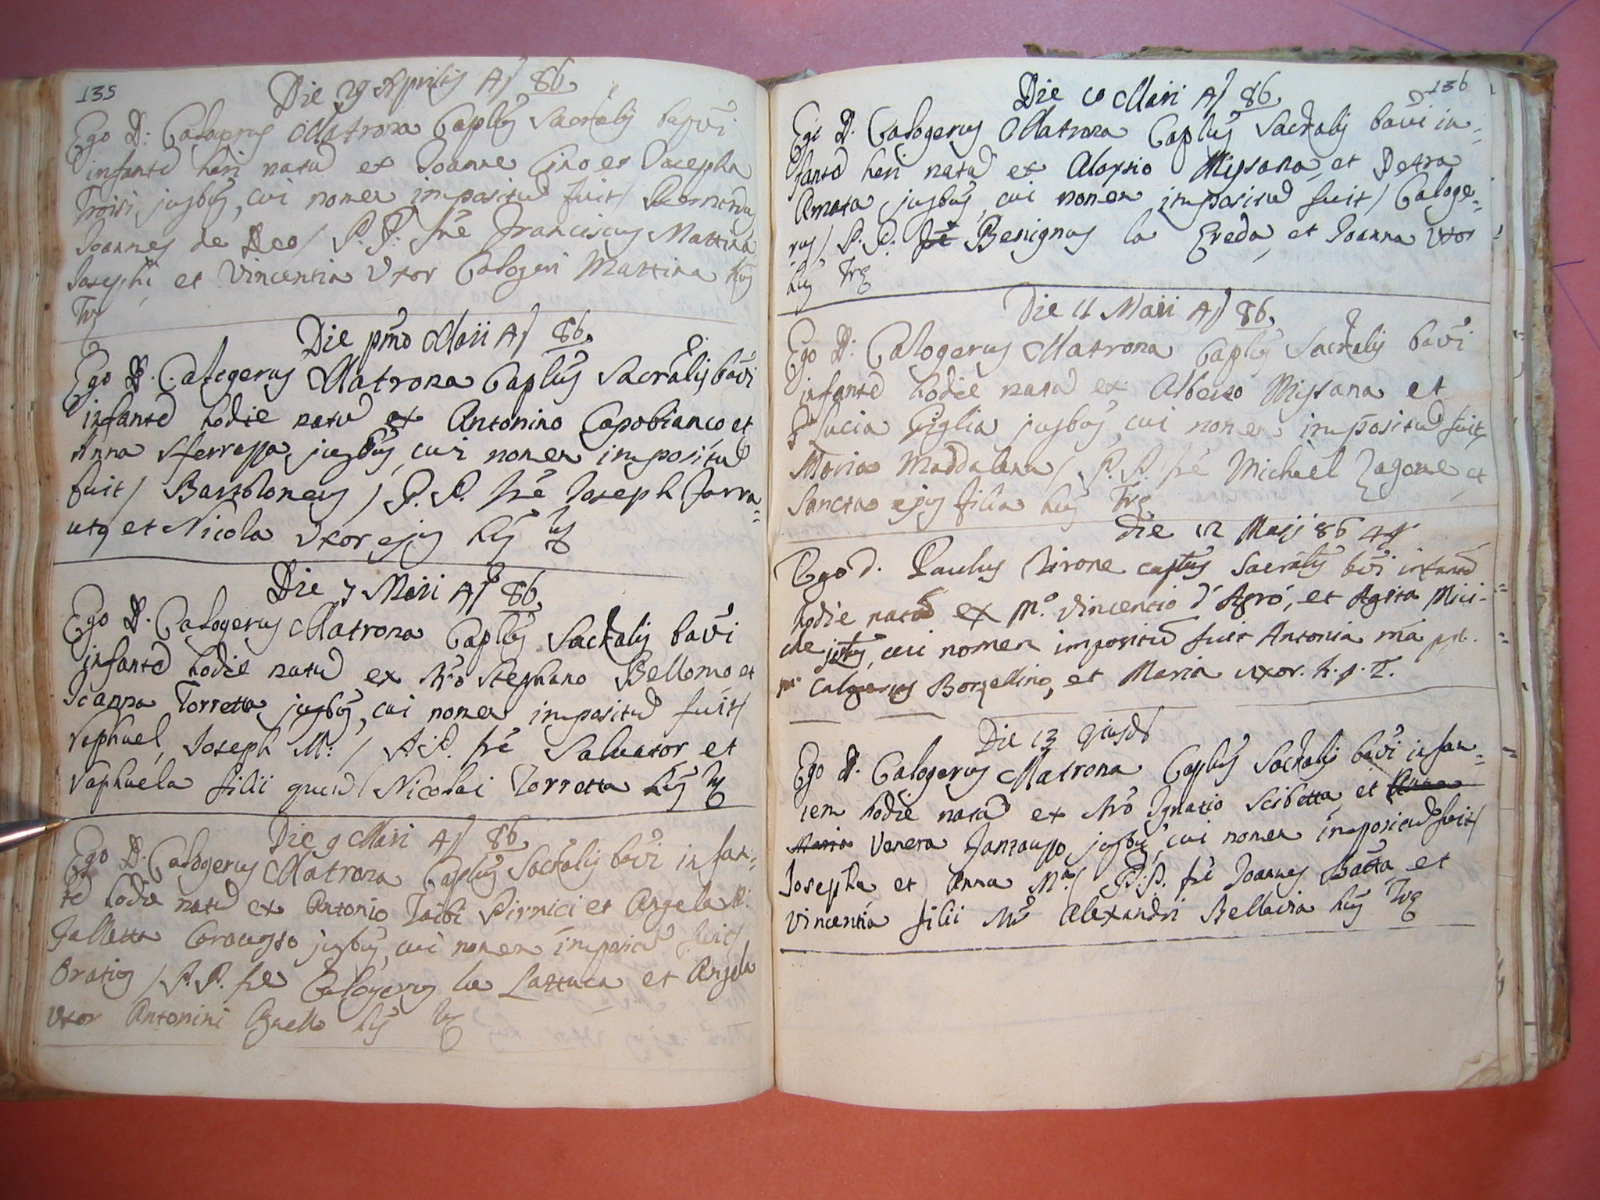 135
Die 29 Aprilis A, 86
Ego D: Calogerus Matrona Caplūs Sacrālis bapvi
infantē heri natū ex Joanne Cino et Josepha
Troisi jugbūs, cui nomen impositū fuit/
Joannes de Deo/ P.P. frē Franciscus Mattina
Josephi, et Vincentia Uxor Calogeri Mattina hūs
Tr̄æ
Die pmō Maii A, 86
Ego D. Calogerus Matrona Caplūs Sacrālis bavi
infantē hodie natū ex Antonino Capobianco et
Anna Sferrazza jugbūs, cui nomen impositū
fuit/ Bartholoneus/ P.P. frē Joseph Farra=
uto et Nicola Uxor ejus hūs
Die 7 Maii A, 86
Ego D. Calogerus Matrona Caplūs Sacrālis bavi
infantē hodie natū ex Mro Stephano Bellomo et
Joanna Torretta jugbūs, cui nomen impositū fuit/
Raphael, Joseph M:/ P.P. frē Salvator et
Raphaela filii quēd/ Nicolai Torretta hūs
Die 9 Maii A, 86
Ego D. Calogerus Matrona Caplūs Sacrālis bavi infan=
tē hodie natū ex Antonio Taibi Pirnici et Angela
Galletta Caracozzo jugbūs, cui nomen imposit fuit/
Oratius/ P.P. frē Calogerus La Lattuca et Angela
Uxor Antonini hūs
136
Die 10 Maii A, 86
Ego D. Calogerus Matrona Caplūs Sacrālis bavi in=
fantē heri natū ex Aloysio Missana, et Petra
Amata jugbūs, cui nomen impositū fuit/ Caloge=
rus/ P.P. frē Benignus La Greda, et Joanna Uxor
hūs Træ
Die 11 Maii A, 86
Ego D: Calogerus Matrona Caplūs Sacrālis bavi
infantē hodie natā ex Alberto Missana et
Lucia Giglia jugbūs, cui nomen impositū fuit
Maria Maddalena/ P.P. frē Michael Zagone et
Sancta ejus filia hūs Træ
Die 12 Maij 86 4ª
Ego D. Paulus Virone captus Sacrālis bvi infantē
hodie natā ex Mº Vincentio d'Agrò, et Agata Mici-
che jbus, cui nomen impositū fuit Antonia mā
Calogerus Borzellino, et Maria uxor. h. s. T.
Die 13 ejusd
Ego D. Calogerus Matrona Caplūs Sacrālis bavi infan=
tem hodie natā ex Mro Ignatio Scibetta, et
Venera Fantauzzo jugbūs, cui nomen impositū fuit/
Josepha, et Anna Mª/ P.P. frē Joannes Batta et
Vincentia filii Mri Alexandri Bellavia hūs Træ